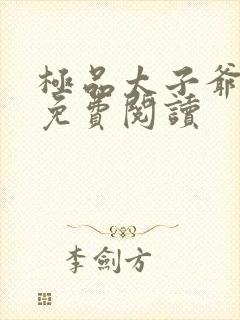 極品太子爺
免費閱讀
李劍方